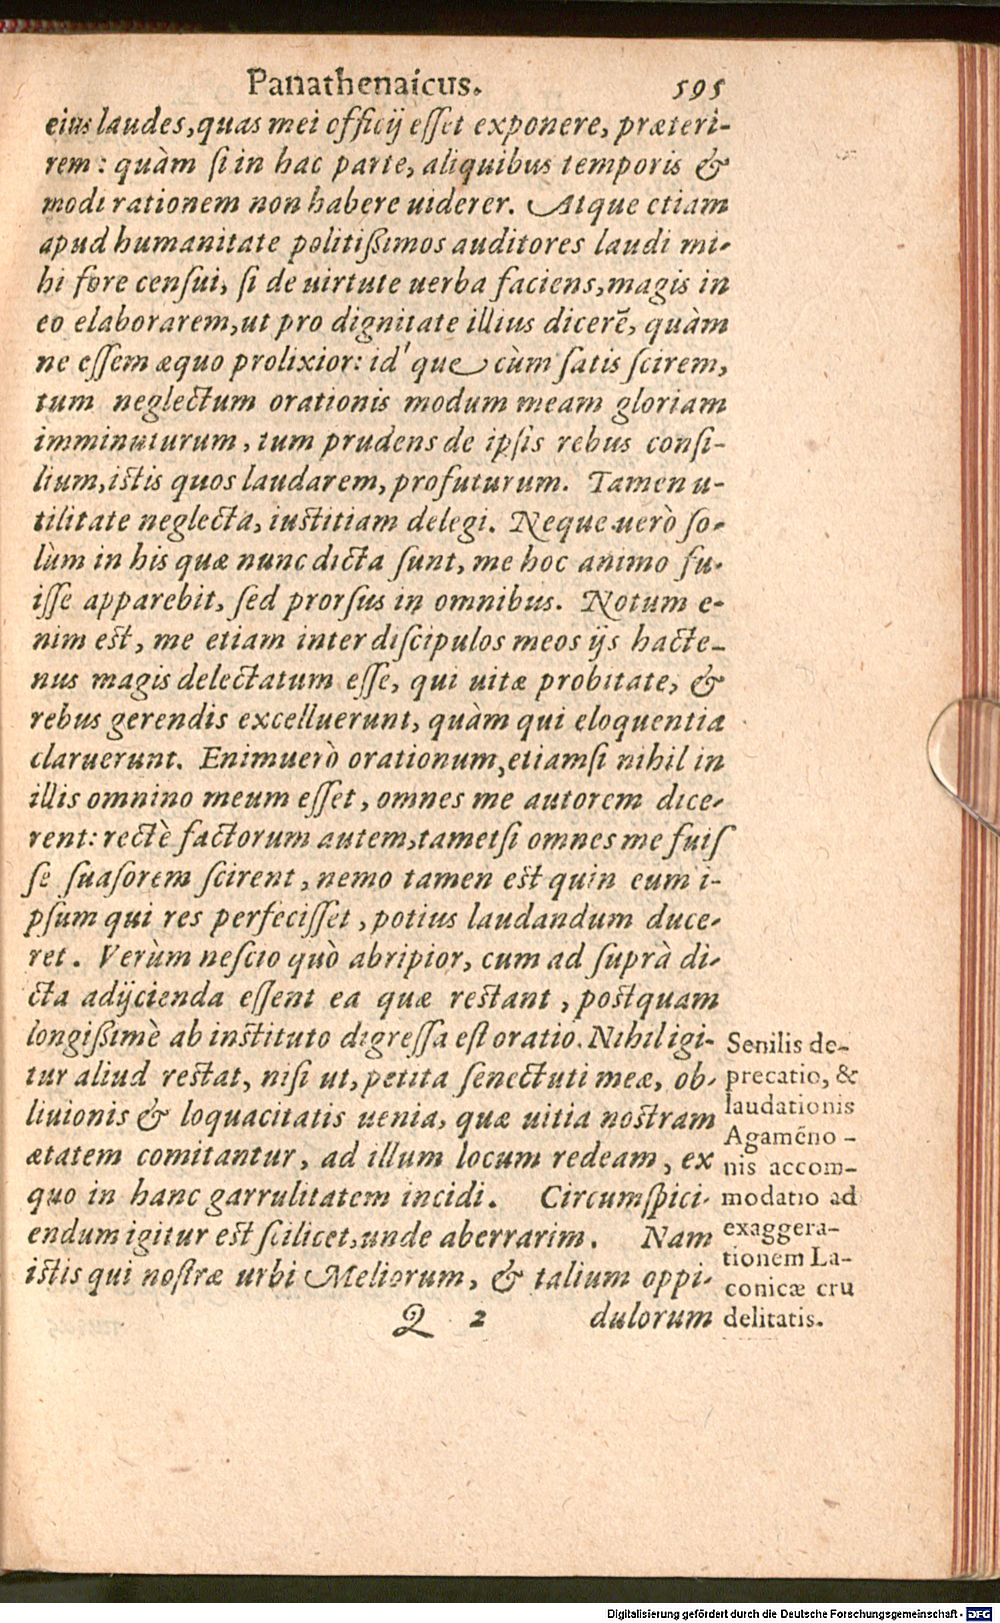 Panathenaicus. 595
eius laudes, quas mei officij esset exponere, præteri-
rem: quàm si in hac parte, aliquibus temporis &
modi rationem non habere uiderer. Atque etiam
apud humanitate politißimos auditores laudi mi-
hi fore censui, si de uirtute uerba faciens, magis in
eo elaborarem, ut pro dignitate illius dicerē, quàm
ne essem æquo prolixior: id'que cùm satis scirem,
tum neglectum orationis modum meam gloriam
imminuturum, tum prudens de ipsis rebus consi-
lium, istis quos laudarem, profuturum. Tamen u-
tilitate neglecta, iustitiam delegi. Neque uerò so-
lùm in his quæ nunc dicta sunt, me hoc animo fu-
isse apparebit, sed prorsus in omnibus. Notum e-
nim est, me etiam inter discipulos meos ijs hacte-
nus magis delectatum esse, qui uitæ probitate, &
rebus gerendis excelluerunt, quàm qui eloquentia
claruerunt. Enimuerò orationum, etiamsi nihil in
illis omnino meum esset, omnes me autorem dice-
rent: rectè factorum autem, tametsi omnes me fuis
se suasorem scirent, nemo tamen est quin eum i-
psum qui res perfecisset, potius laudandum duce-
ret. Verùm nescio quò abripior, cum ad suprà di-
cta adijcienda essent ea quæ restant, postquam
longißimè ab instituto digressa est oratio. Nihil igi-
tur aliud restat, nisi ut, petita senectuti meæ, ob-
liuionis & loquacitatis uenia, quæ uitia nostram
ætatem comitantur, ad illum locum redeam, ex
quo in hanc garrulitatem incidi. Circumspici-
endum igitur est scilicet, unde aberrarim. Nam
istis qui nostræ urbi Meliorum, & talium oppi-
Q 2 dulorum
Senilis de-
precatio, &
laudationis
Agamēno-
nis accom-
modatio ad
exaggera-
tionem La-
conicæ cru
delitatis.
Digitalisierung gefördert durch die Deutsche Forschungsgemeinschaft - DFG